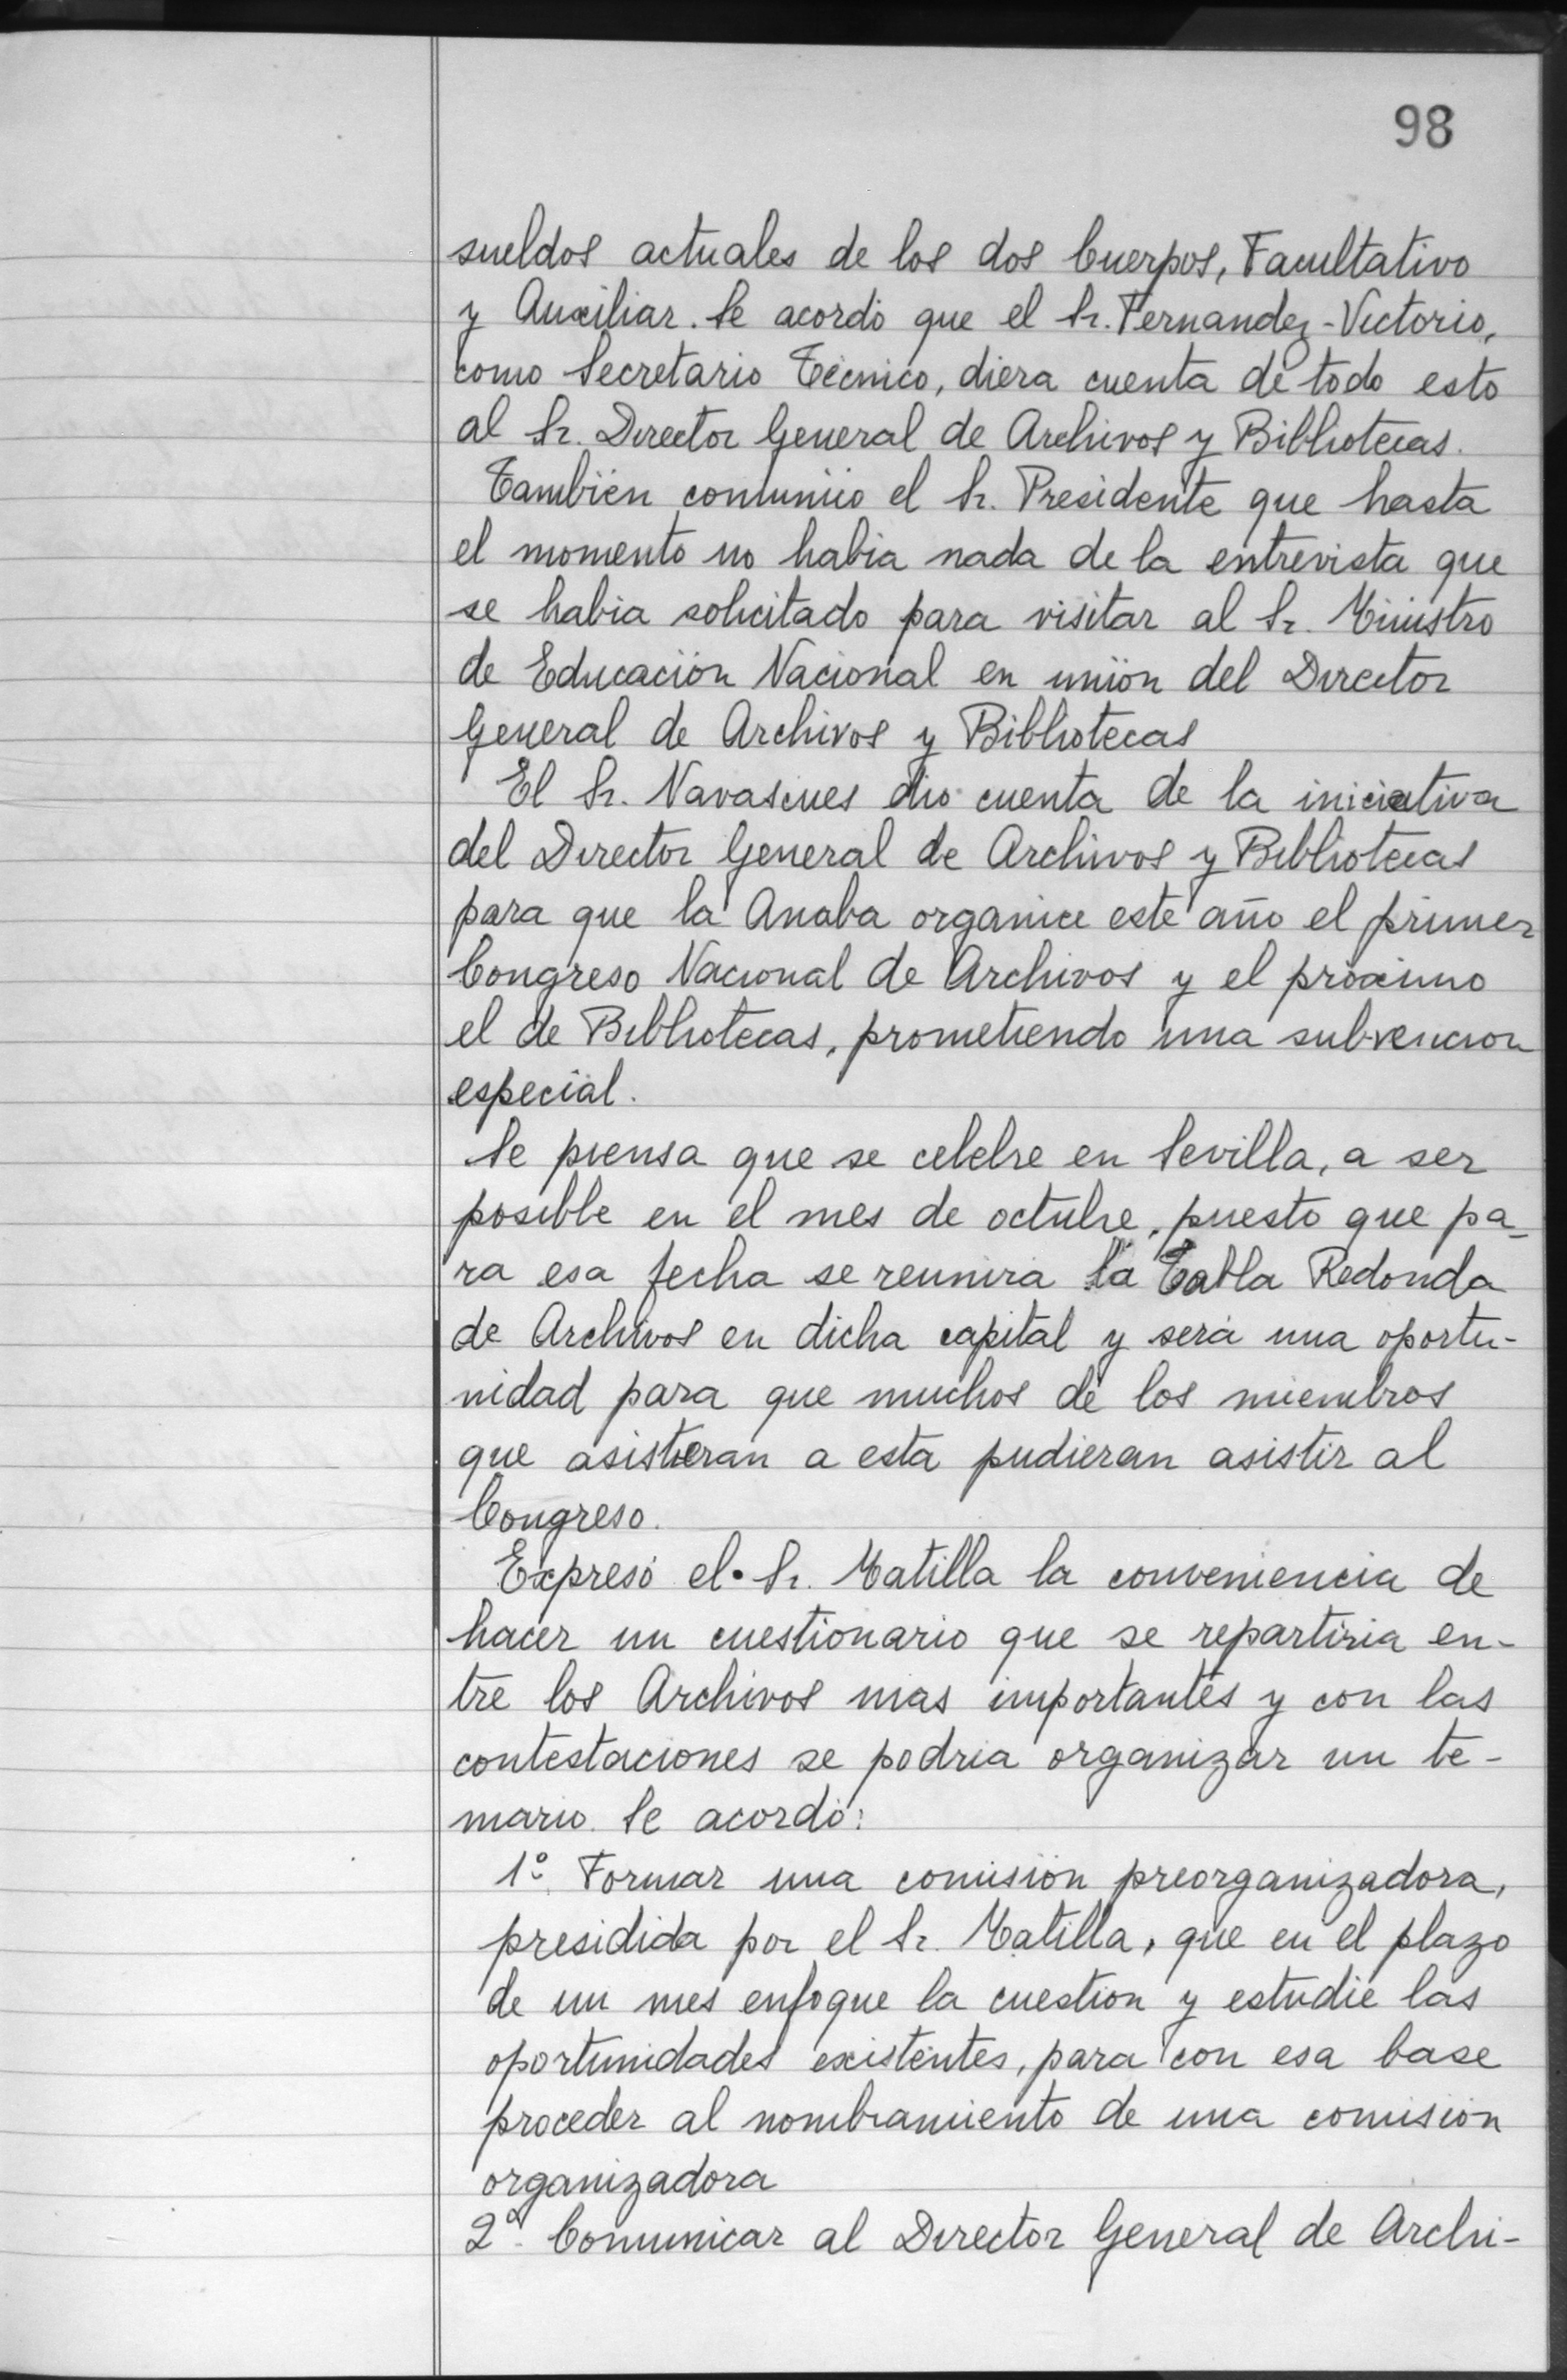 98
sueldos actuales de los dos Cuerpos, Facultativo
y Auxiliar. Se acordó que el Sr. Fernandez-Victorio,
como Secretario Técnico, diera cuenta de todo esto
al Sr. Director General de Archivos y Bibliotecas.
También comunicó el Sr. Presidente que hasta
el momento no habia nada de la entrevista que
se habia solicitado para visitar al Sr. Ministro
de Educación Nacional en unión del Director
General de Archivos y Bibliotecas
El Sr. Navascues dio cuenta de la iniciativa
del Director General de Archivos y Bibliotecas
para que la Anaba organice este año el primer
Congreso Nacional de Archivos y el próximo
el de Bibliotecas, prometiendo una subvencion
especial.
Se piensa que se celebre en Sevilla, a ser
posible en el mes de octubre, puesto que pa-
ra esa fecha se reunira la Tabla Redonda
de Archivos en dicha capital y será una oportu-
nidad para que muchos de los miembros
que asistieran a esta pudieran asistir al
Congreso.
Expresó el Sr. Matilla la conveniencia de
hacer un cuestionario que se repartiria en-
tre los Archivos mas importantes y con las
contestaciones se podria organizar un te-
mario. Se acordó:
1º. Formar una comisión preorganizadora,
presidida por el Sr. Matilla, que en el plazo
de un mes enfoque la cuestion y estudie las
oportunidades existentes, para con esa base
proceder al nombramiento de una comisión
organizadora
2º. Comunicar al Director General de Archi-